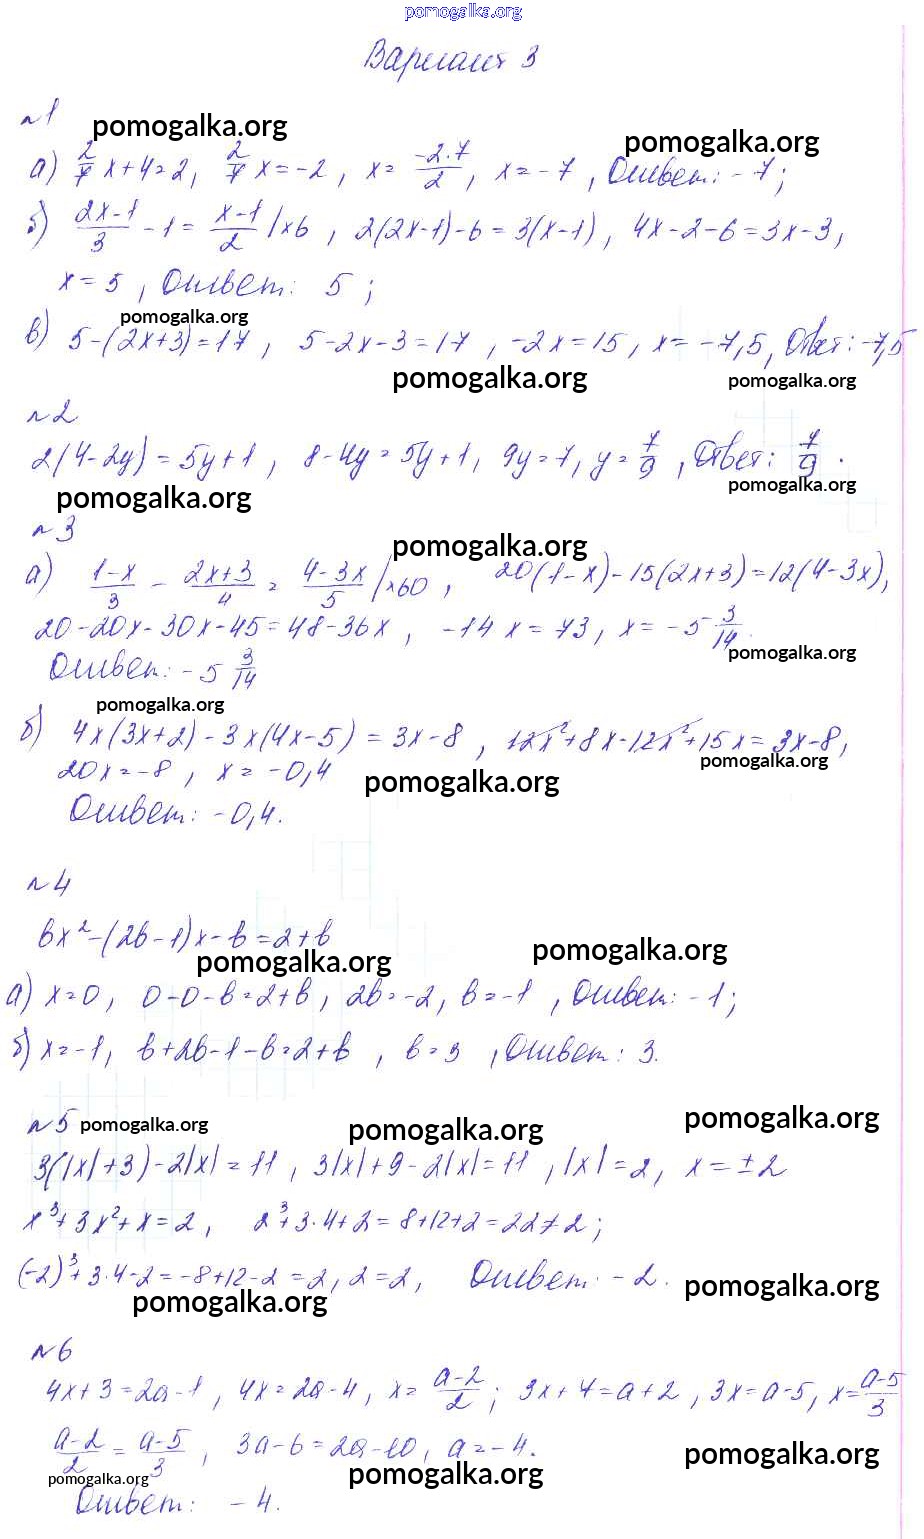 pomogalka.org
Вариант 3
№1
pomogalka.org
pomogalka.org
а) 2/7 x + 4 = 2, 2/7 x = -2, x = -2·7/2, x = -7, Ответ: -7;
б) (2x-1)/3 - 1 = (x-1)/2 |×6, 2(2x-1)-6 = 3(x-1), 4x-2-6 = 3x-3,
x = 5, Ответ: 5;
pomogalka.org
в) 5-(2x+3) = 17, 5-2x-3 = 17, -2x = 15, x = -7,5, Ответ: -7,5
pomogalka.org pomogalka.org
№2
2(4-2y) = 5y+1, 8-4y = 5y+1, 9y = 7, y = 7/9, Ответ: 7/9.
pomogalka.org pomogalka.org
№3
pomogalka.org
а) (1-x)/3 - (2x+3)/4 = (4-3x)/5 |×60, 20(1-x)-15(2x+3) = 12(4-3x),
20-20x-30x-45 = 48-36x, -14x = 73, x = -5 3/14.
pomogalka.org
Ответ: -5 3/14
pomogalka.org
б) 4x(3x+2)-3x(4x-5) = 3x-8, 12x²+8x-12x²+15x = 3x-8,
pomogalka.org
20x = -8, x = -0,4
pomogalka.org
Ответ: -0,4.
№4
bx²-(2b-1)x-b = 2+b
pomogalka.org pomogalka.org
а) x=0, 0-0-b = 2+b, 2b = -2, b = -1, Ответ: -1;
б) x=-1, b+2b-1-b = 2+b, b = 3, Ответ: 3.
№5 pomogalka.org pomogalka.org pomogalka.org
3(|x|+3)-2|x| = 11, 3|x|+9-2|x| = 11, |x| = 2, x = ±2
x³+3x²+x = 2, 2³+3·4+2 = 8+12+2 = 22≠2;
(-2)³+3·4-2 = -8+12-2 = 2, 2=2, Ответ: -2.
pomogalka.org pomogalka.org
№6
4x+3 = 2a-1, 4x = 2a-4, x = (a-2)/2; 3x+7 = a+2, 3x = a-5, x = (a-5)/3
(a-2)/2 = (a-5)/3, 3a-6 = 2a-10, a = -4.
pomogalka.org pomogalka.org pomogalka.org
Ответ: -4.